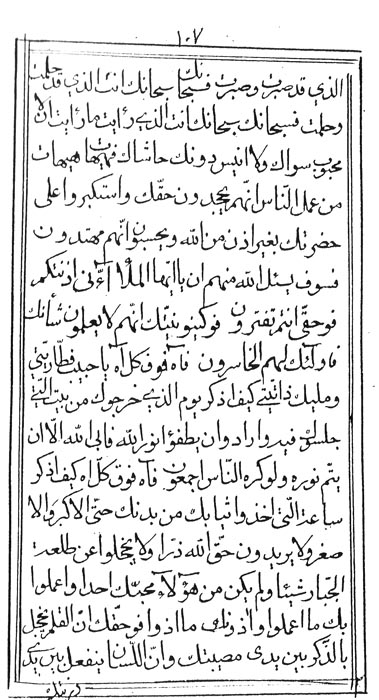 ١٠٧
الذي قد صبرت وصبرت فسبحانك سبحانك انت الذي قد حلمت
وحلمت فسبحانك سبحانك انت الذي رايت ما رايت ان لا
محبوب سواك ولا انيس دونك حاشاك فهيهات هيهات
من عمل الناس انهم يجحدون حقك واستكبروا على
حضرتك بغير اذن من الله ويحسبون انهم مهتدون
فسوف يسئل الله منهم ان يا ايها الملأ آلله اذن لكم
فوحقك لتفترون فوكينونيتك انهم لا يعلمون شأنك
فاولئك لهم الخاسرون فآه فوق كل آه يا حبيب فطار بيتي
ومليك ذاتيتي كيف اذكر يوم الذي اخرجوك من بيت التي
جلست فيه وارادوا ان يطفؤا نور الله فابى الله الا ان
يتم نوره ولو كره الناس اجمعون فآه فوق كل آه كيف اذكر
ساعة التي اخذوا ثيابك من بدنك حتى الاكبر والا
صغر ولا يريدون حق الله ذرا ولا يخجلوا عن طلعة
الجبار شيئا ولم يكن من هؤلاء محبك احدا واعملوا
بك ما اعملوا واذوك ما اذوا فوحقك ان القلم يخجل
بالذكر بين يدي مصيبتك وان اللسان ينفعل بين يدي